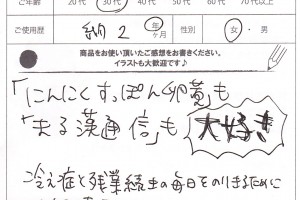 ご年齢 20代 30代 40代 50代 60代 70代以上
ご使用歴 約2 年 ヶ月 性別 女・男
商品をお使い頂いたご感想をお書きください。
イラストも大歓迎です♪
「にんにくすっぽん卵黄」も
「ええ漢通信」も 大好き
冷え症と残業続きの毎日をのりきるために